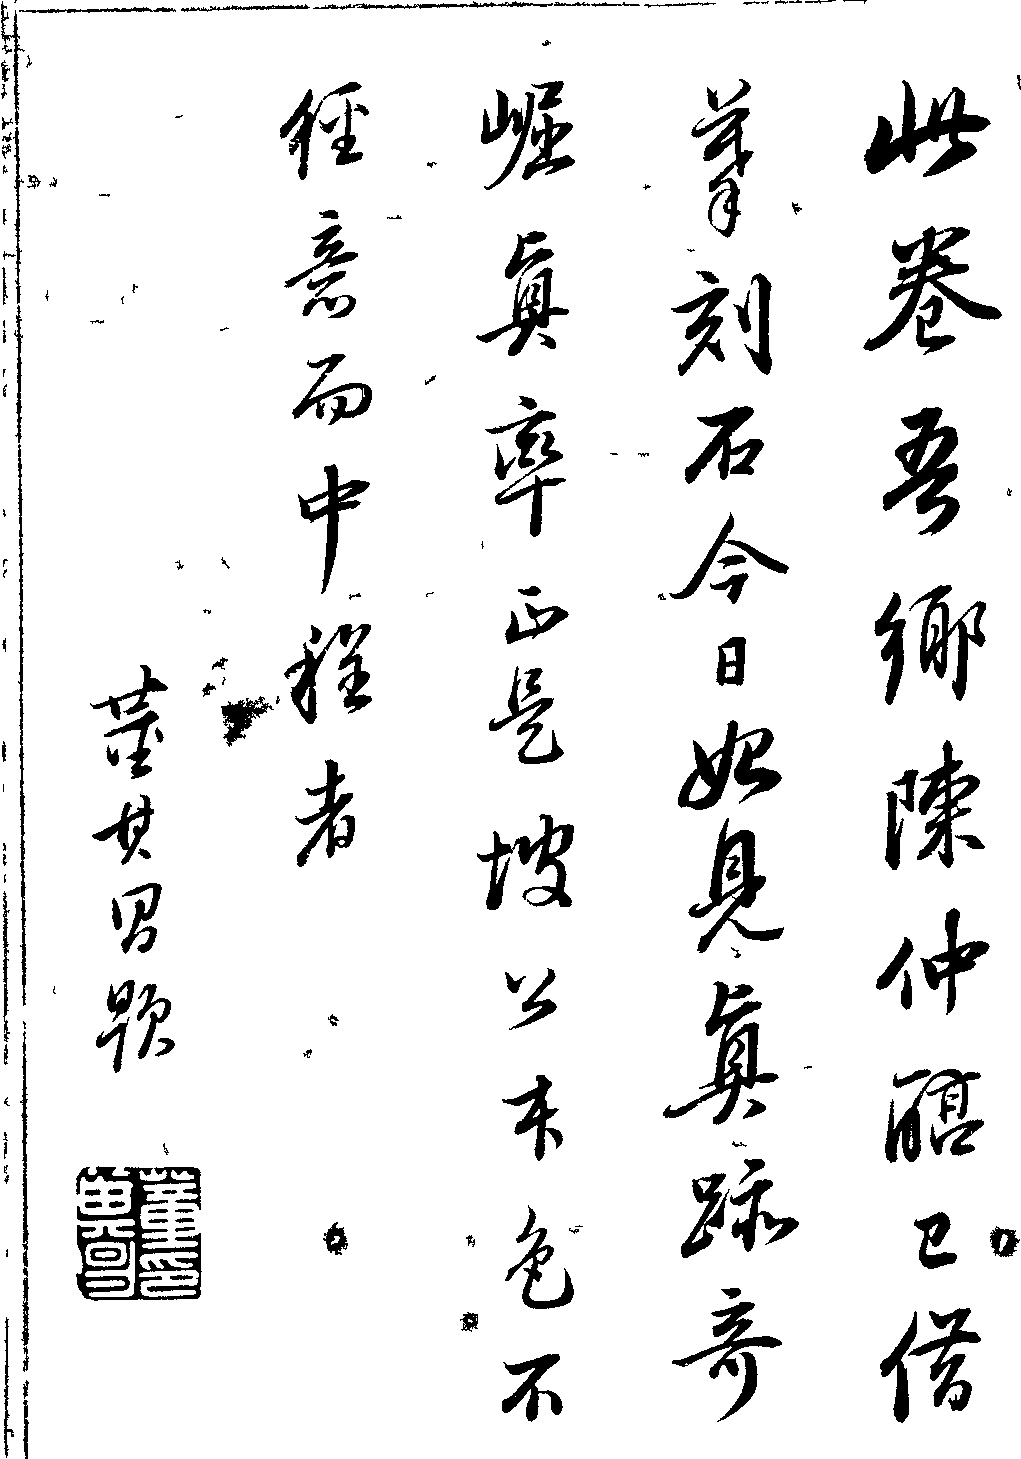 此卷吾鄉陳仲醇已借
摹刻石今日始見眞跡奇
崛眞率正是坡公本色不
經意而中程者
董其昌題
董印其昌